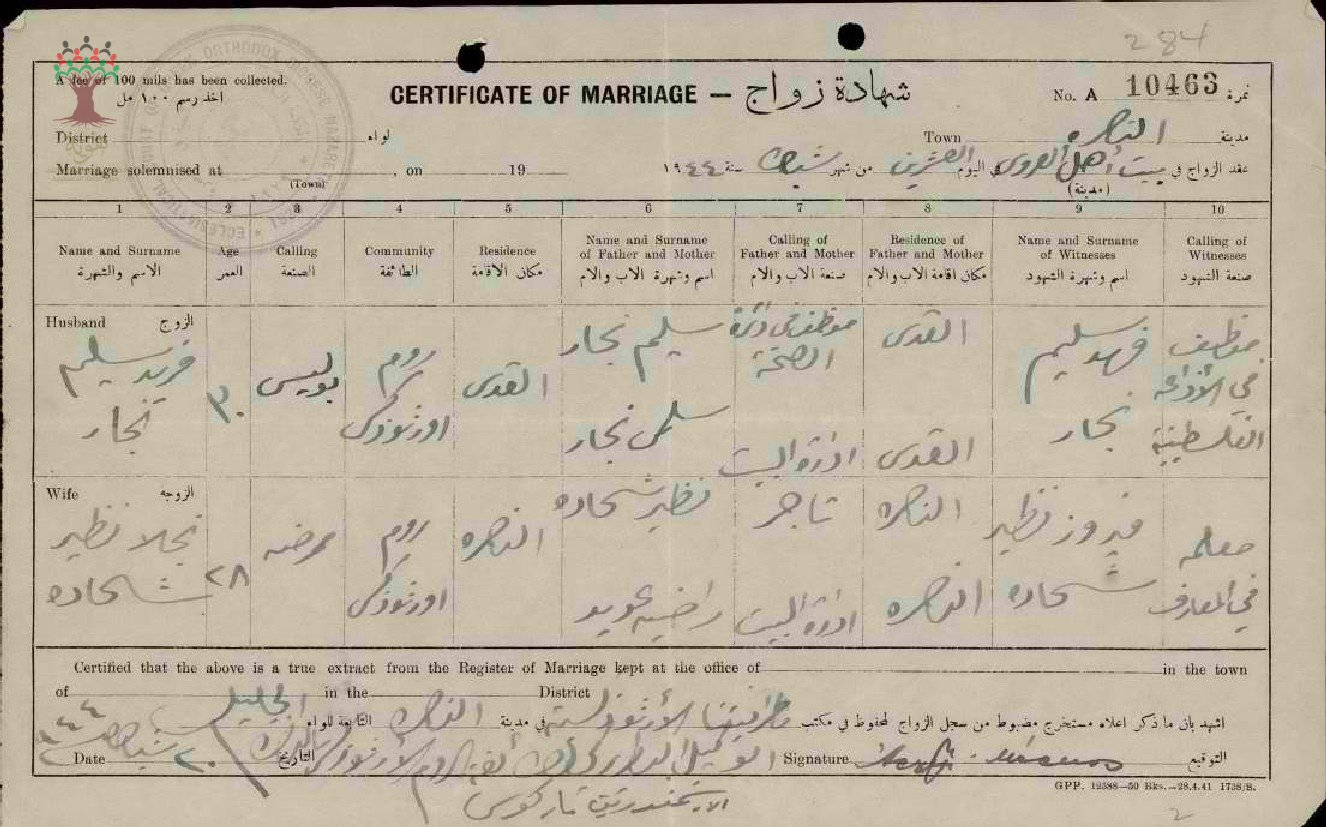 284
A fee of 100 mils has been collected.
اخذ رسم ١٠٠ مل
CERTIFICATE OF MARRIAGE — شهادة زواج
No. A 10463 نمرة
District لواء
Town الناصره مدينة
Marriage solemnised at , on 19
(Town)
عقد الزواج في بيت أهل العروس في اليوم العشرين من شهر شباط سنة ١٩٤٤
(مدينة)
1 2 3 4 5 6 7 8 9 10
Name and Surname
الاسم والشهرة
Age
العمر
Calling
الصنعة
Community
الطائفة
Residence
مكان الاقامة
Name and Surname of Father and Mother
اسم وشهرة الاب والام
Calling of Father and Mother
صنعة الاب والام
Residence of Father and Mother
مكان اقامة الاب والام
Name and Surname of Witnesses
اسم وشهرة الشهود
Calling of Witnesses
صنعة الشهود
Husband الزوج
فريد سليم
نجار
٣٠
بوليس
روم
اورثوذكس
القدس
سليم نجار
سلمى نجار
موظف في دائرة
الصحة
ادارة البيت
القدس
القدس
فهد سليم
نجار
موظف
في الأذاعه
الفلسطينية
Wife الزوجه
نجلا نظير
شحاده
٢٨
ممرضه
روم
اورثوذكس
الناصره
نظير شحاده
راضيه
تاجر
ادارة البيت
الناصره
الناصره
فيروز نظير
شحاده
معلمه
في المعارف
Certified that the above is a true extract from the Register of Marriage kept at the office of in the town
of in the District
اشهد بان ما ذكر اعلاه مستخرج مضبوط من سجل الزواج المحفوظ في مكتب في مدينة الناصره التابعة للواء الجليل
Date ٢٠ شباط التاريخ
Signature التوقيع
الارشمندريت ماركوس
GPP. 12588—50 Bks.—28.4.41 1738/S.
2